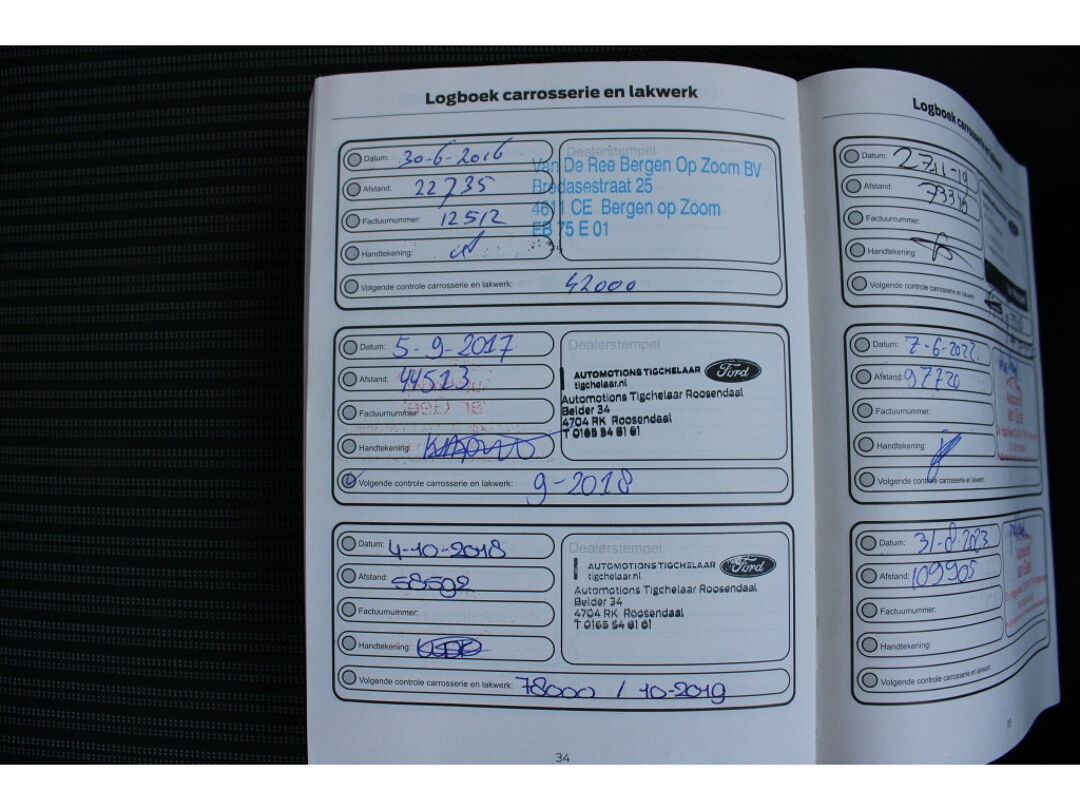 Logboek carrosserie en lakwerk
Datum: 30-6-2016
Afstand: 22735
Factuurnummer: 12512
Handtekening:
Dealerstempel
Van De Ree Bergen Op Zoom BV
Bredasestraat 25
4611 CE Bergen op Zoom
EB 75 E 01
Volgende controle carrosserie en lakwerk: 42000
Datum: 5-9-2017
Afstand: 44513
Factuurnummer:
Handtekening:
Dealerstempel
AUTOMOTIONS TIGCHELAAR Ford
tigchelaar.nl
Automotions Tigchelaar Roosendaal
Belder 34
4704 RK Roosendaal
T 0165 54 81 81
Volgende controle carrosserie en lakwerk: 9-2018
Datum: 4-10-2018
Afstand: 58592
Factuurnummer:
Handtekening:
Dealerstempel
AUTOMOTIONS TIGCHELAAR Ford
tigchelaar.nl
Automotions Tigchelaar Roosendaal
Belder 34
4704 RK Roosendaal
T 0165 54 81 81
Volgende controle carrosserie en lakwerk: 78000 / 10-2019
34
Logboek carrosserie en lakwerk
Datum: 27-11-19
Afstand: 73346
Factuurnummer:
Handtekening:
Volgende controle carrosserie en lakwerk:
Datum: 7-6-2022.
Afstand: 97720
Factuurnummer:
Handtekening:
Volgende controle carrosserie en lakwerk:
Datum: 31-8-2023
Afstand: 109905
Factuurnummer:
Handtekening:
Volgende controle carrosserie en lakwerk:
35